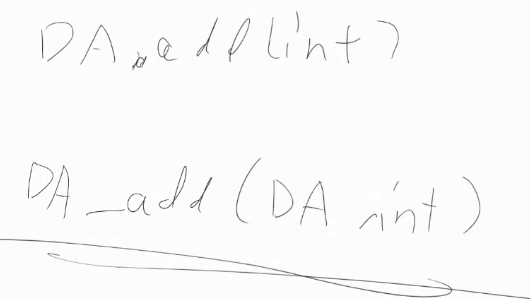 DA.add(int)
DA_add(DA, int)